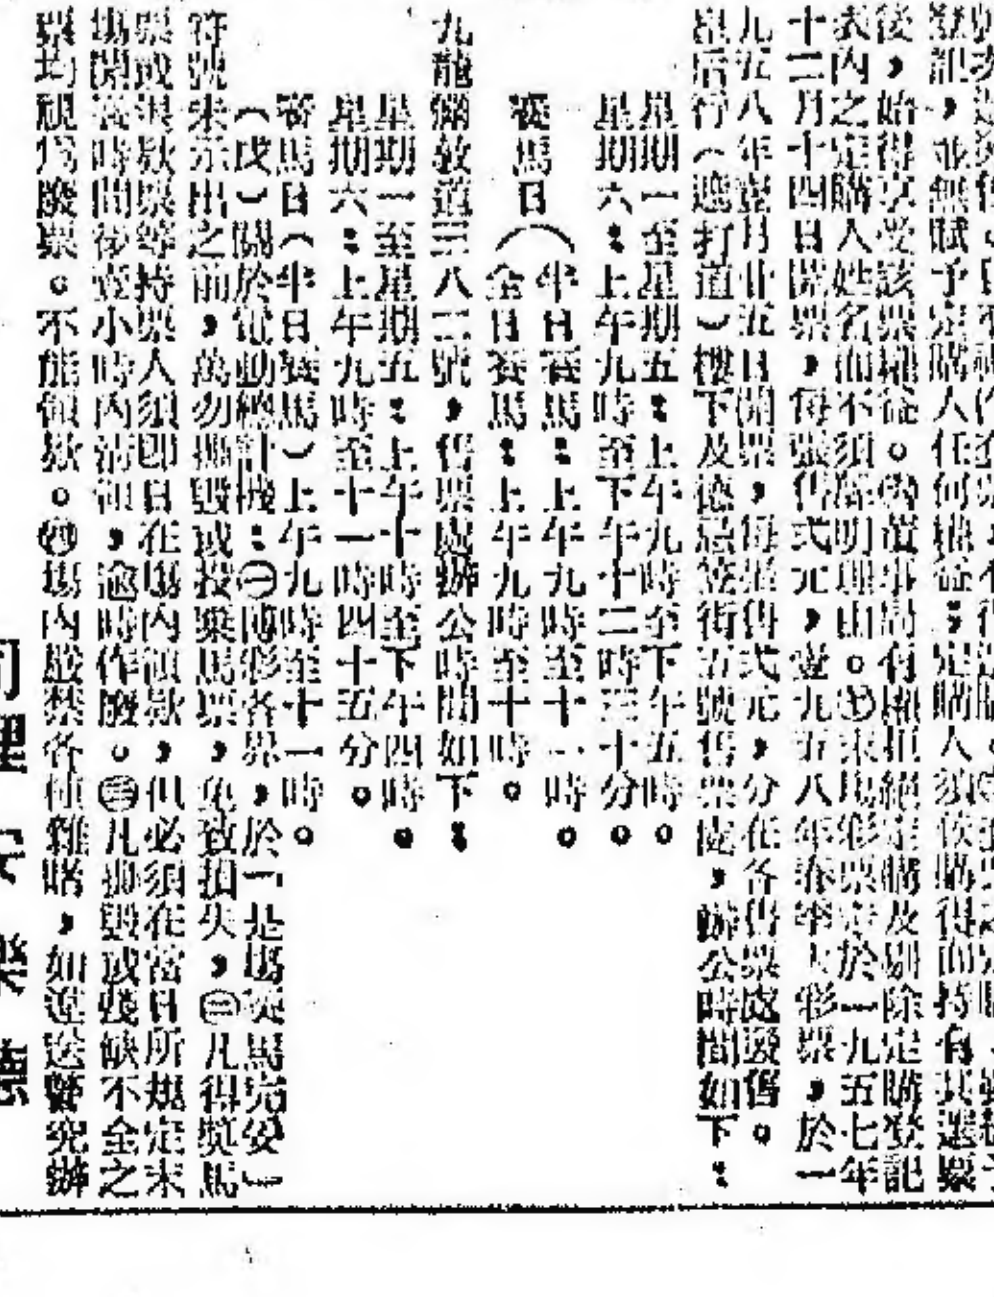 登記，並無賦予定購人任何權益；定購人須俟購得而持有其選票
後，始得享受該票權益。董事局有權拒絕定購及剔除定購登記
表內之定購人姓名而不須解明理由。來塲彩票定於一九五七年
十二月十四日開票，每張售式元，壹九五八年春季大彩票，於一
九五八年壹月廿五日開票，每張售式元，分在各售票處發售。
皇后行（遮打道）樓下及德忌笠街五號售票處，辦公時間如下：
星期一至星期五：上午九時至下午五時。
星期六：上午九時至下午十二時三十分。
賽馬日（半日賽馬：上午九時至十一時。
（全日賽馬：上午九時至十時。
九龍彌敦道三八二號，售票處辦公時間如下：
星期一至星期五：上午十時至下午四時。
星期六：上午九時至十一時四十五分。
賽馬日（半日賽馬）上午九時至十一時。
（戊）關於電動總計機：㊀博彩各界，於「是塲賽馬完妥」
符號未示出之前，萬勿撕毀或投棄馬票，免致損失，㊁凡得獎馬
票或退欵票等持票人須即日在塲內領欵，但必須在當日所規定末
塲開賽時間後壹小時內清領，逾時作廢。㊂凡撕毀或殘缺不全之
票均視爲廢票。不能領欵。塲內嚴禁各種雜賭，如違送警究辦
理安樂德